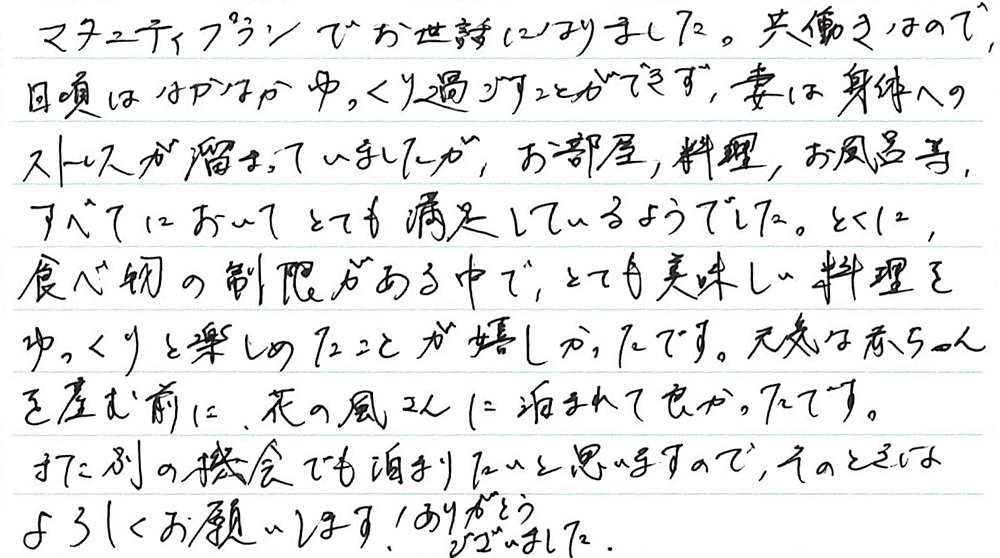 マタニティプランでお世話になりました。共働きなので、
日頃はなかなかゆっくり過ごすことができず、妻は身体への
ストレスが溜まっていましたが、お部屋、料理、お風呂等、
すべてにおいてとても満足しているようでした。とくに、
食べ物の制限がある中で、とても美味しい料理を
ゆっくりと楽しめたことが嬉しかったです。元気な赤ちゃん
を産む前に、花の風さんに泊まれて良かったです。
また別の機会でも泊まりたいと思いますので、そのときは
よろしくお願いします!ありがとう
ございました.